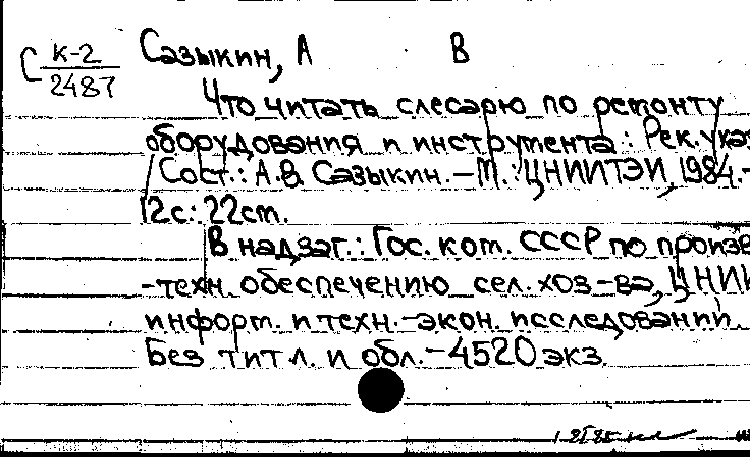 С К-2/2487
Сазыкин, А В
Что читать слесарю по ремонту
оборудования и инструмента: Рек. указ
/Сост.: А.В. Сазыкин. — М.: ЦНИИТЭИ, 1984.-
12с.: 22см.
В надзаг.: Гос. ком. СССР по произв
-техн. обеспечению сел. хоз-ва, ЦНИИ
информ. и техн.-экон. исследований.
Без тит л. и обл. - 4520 экз.